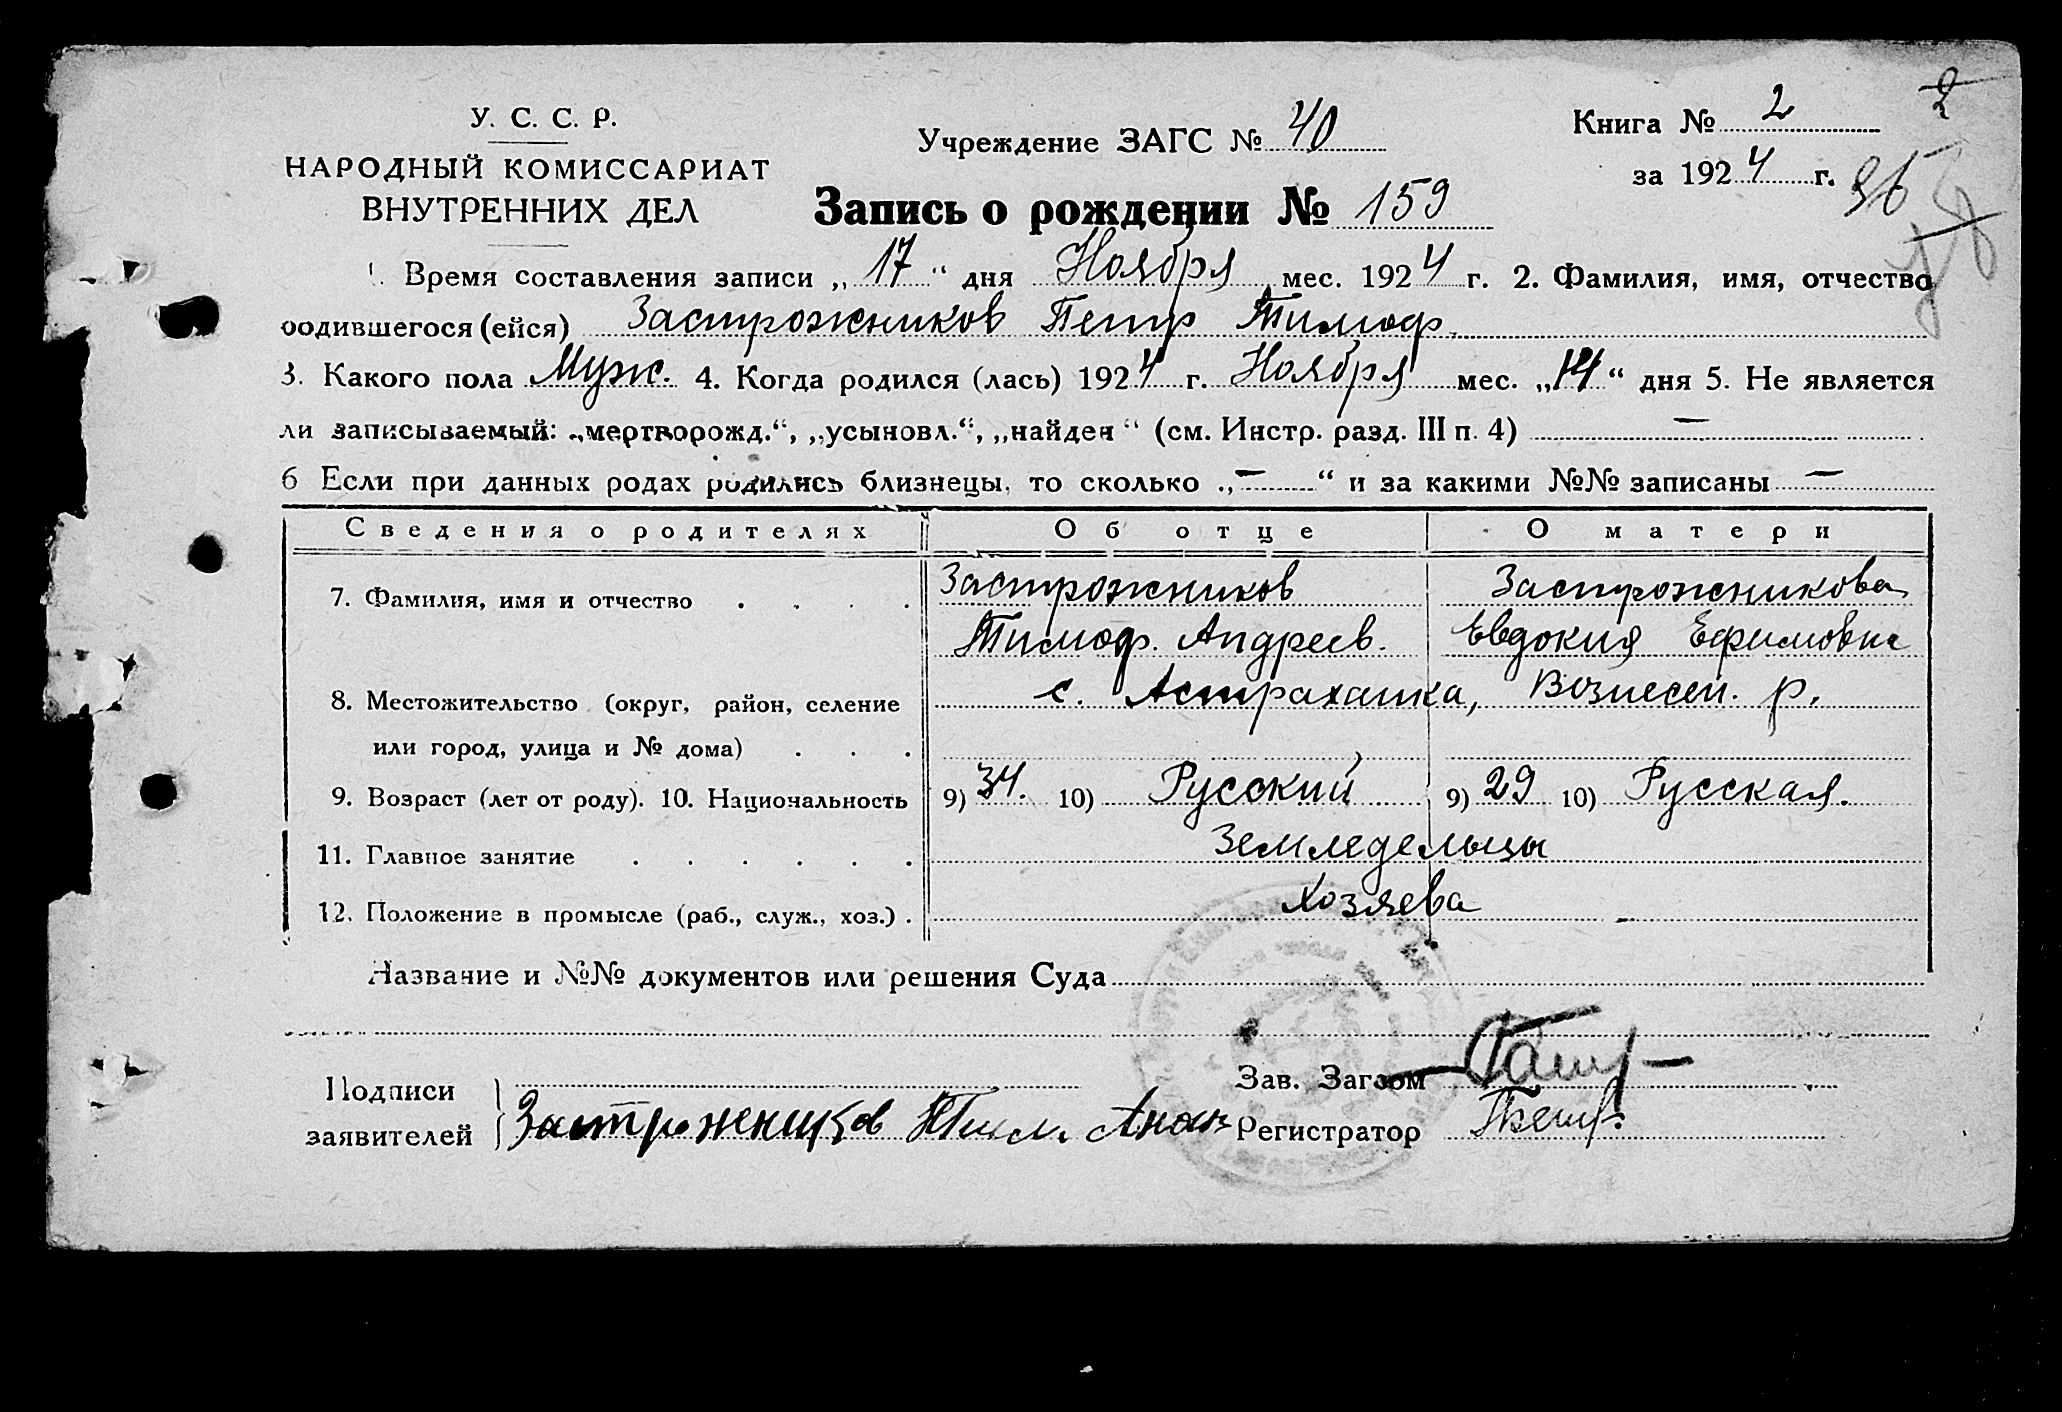 У. С. С. Р.
НАРОДНЫЙ КОМИССАРИАТ
ВНУТРЕННИХ ДЕЛ
Учреждение ЗАГС № 40
Книга № 2
2
за 1924 г.
36
Запись о рождении № 159
1. Время составления записи „17“ дня Ноября мес. 1924 г. 2. Фамилия, имя, отчество
родившегося (ейся) Застрожников Петр Тимоф.
3. Какого пола Муж. 4. Когда родился (лась) 1924 г. Ноября мес. „14“ дня 5. Не является
ли записываемый: „мертворожд.“, „усыновл.“, „найден“ (см. Инстр. разд. III п. 4) —
6 Если при данных родах родились близнецы, то сколько „—“ и за какими №№ записаны —
Сведения о родителях Об отце О матери
7. Фамилия, имя и отчество Застрожников Застрожникова
Тимоф. Андреев. Евдокия Ефимовна
8. Местожительство (округ, район, селение с. Астраханка, Вознесен. р.
или город, улица и № дома)
9. Возраст (лет от роду). 10. Национальность 9) 34. 10) Русский 9) 29 10) Русская.
11. Главное занятие Земледельцы
12. Положение в промысле (раб., служ., хоз.) Хозяева
Название и №№ документов или решения Суда
Подписи
заявителей Застроженщков Тим.
Зав. Загсом
Регистратор